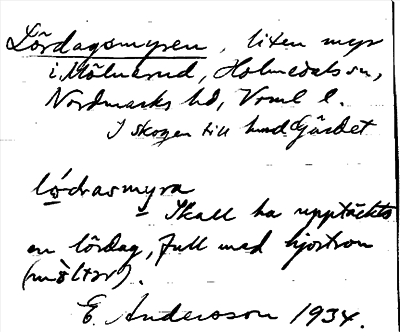 Lördagsmyren, liten myr
i Mölnerud, Holmedals sn,
Nordmarks hd, Vrml l.
I skogen till hmd. Gärdet
lǒ́drasmyra
Skall ha upptäckts
en lördag, full med hjortron
(möltər).
E. Andersson 1934.